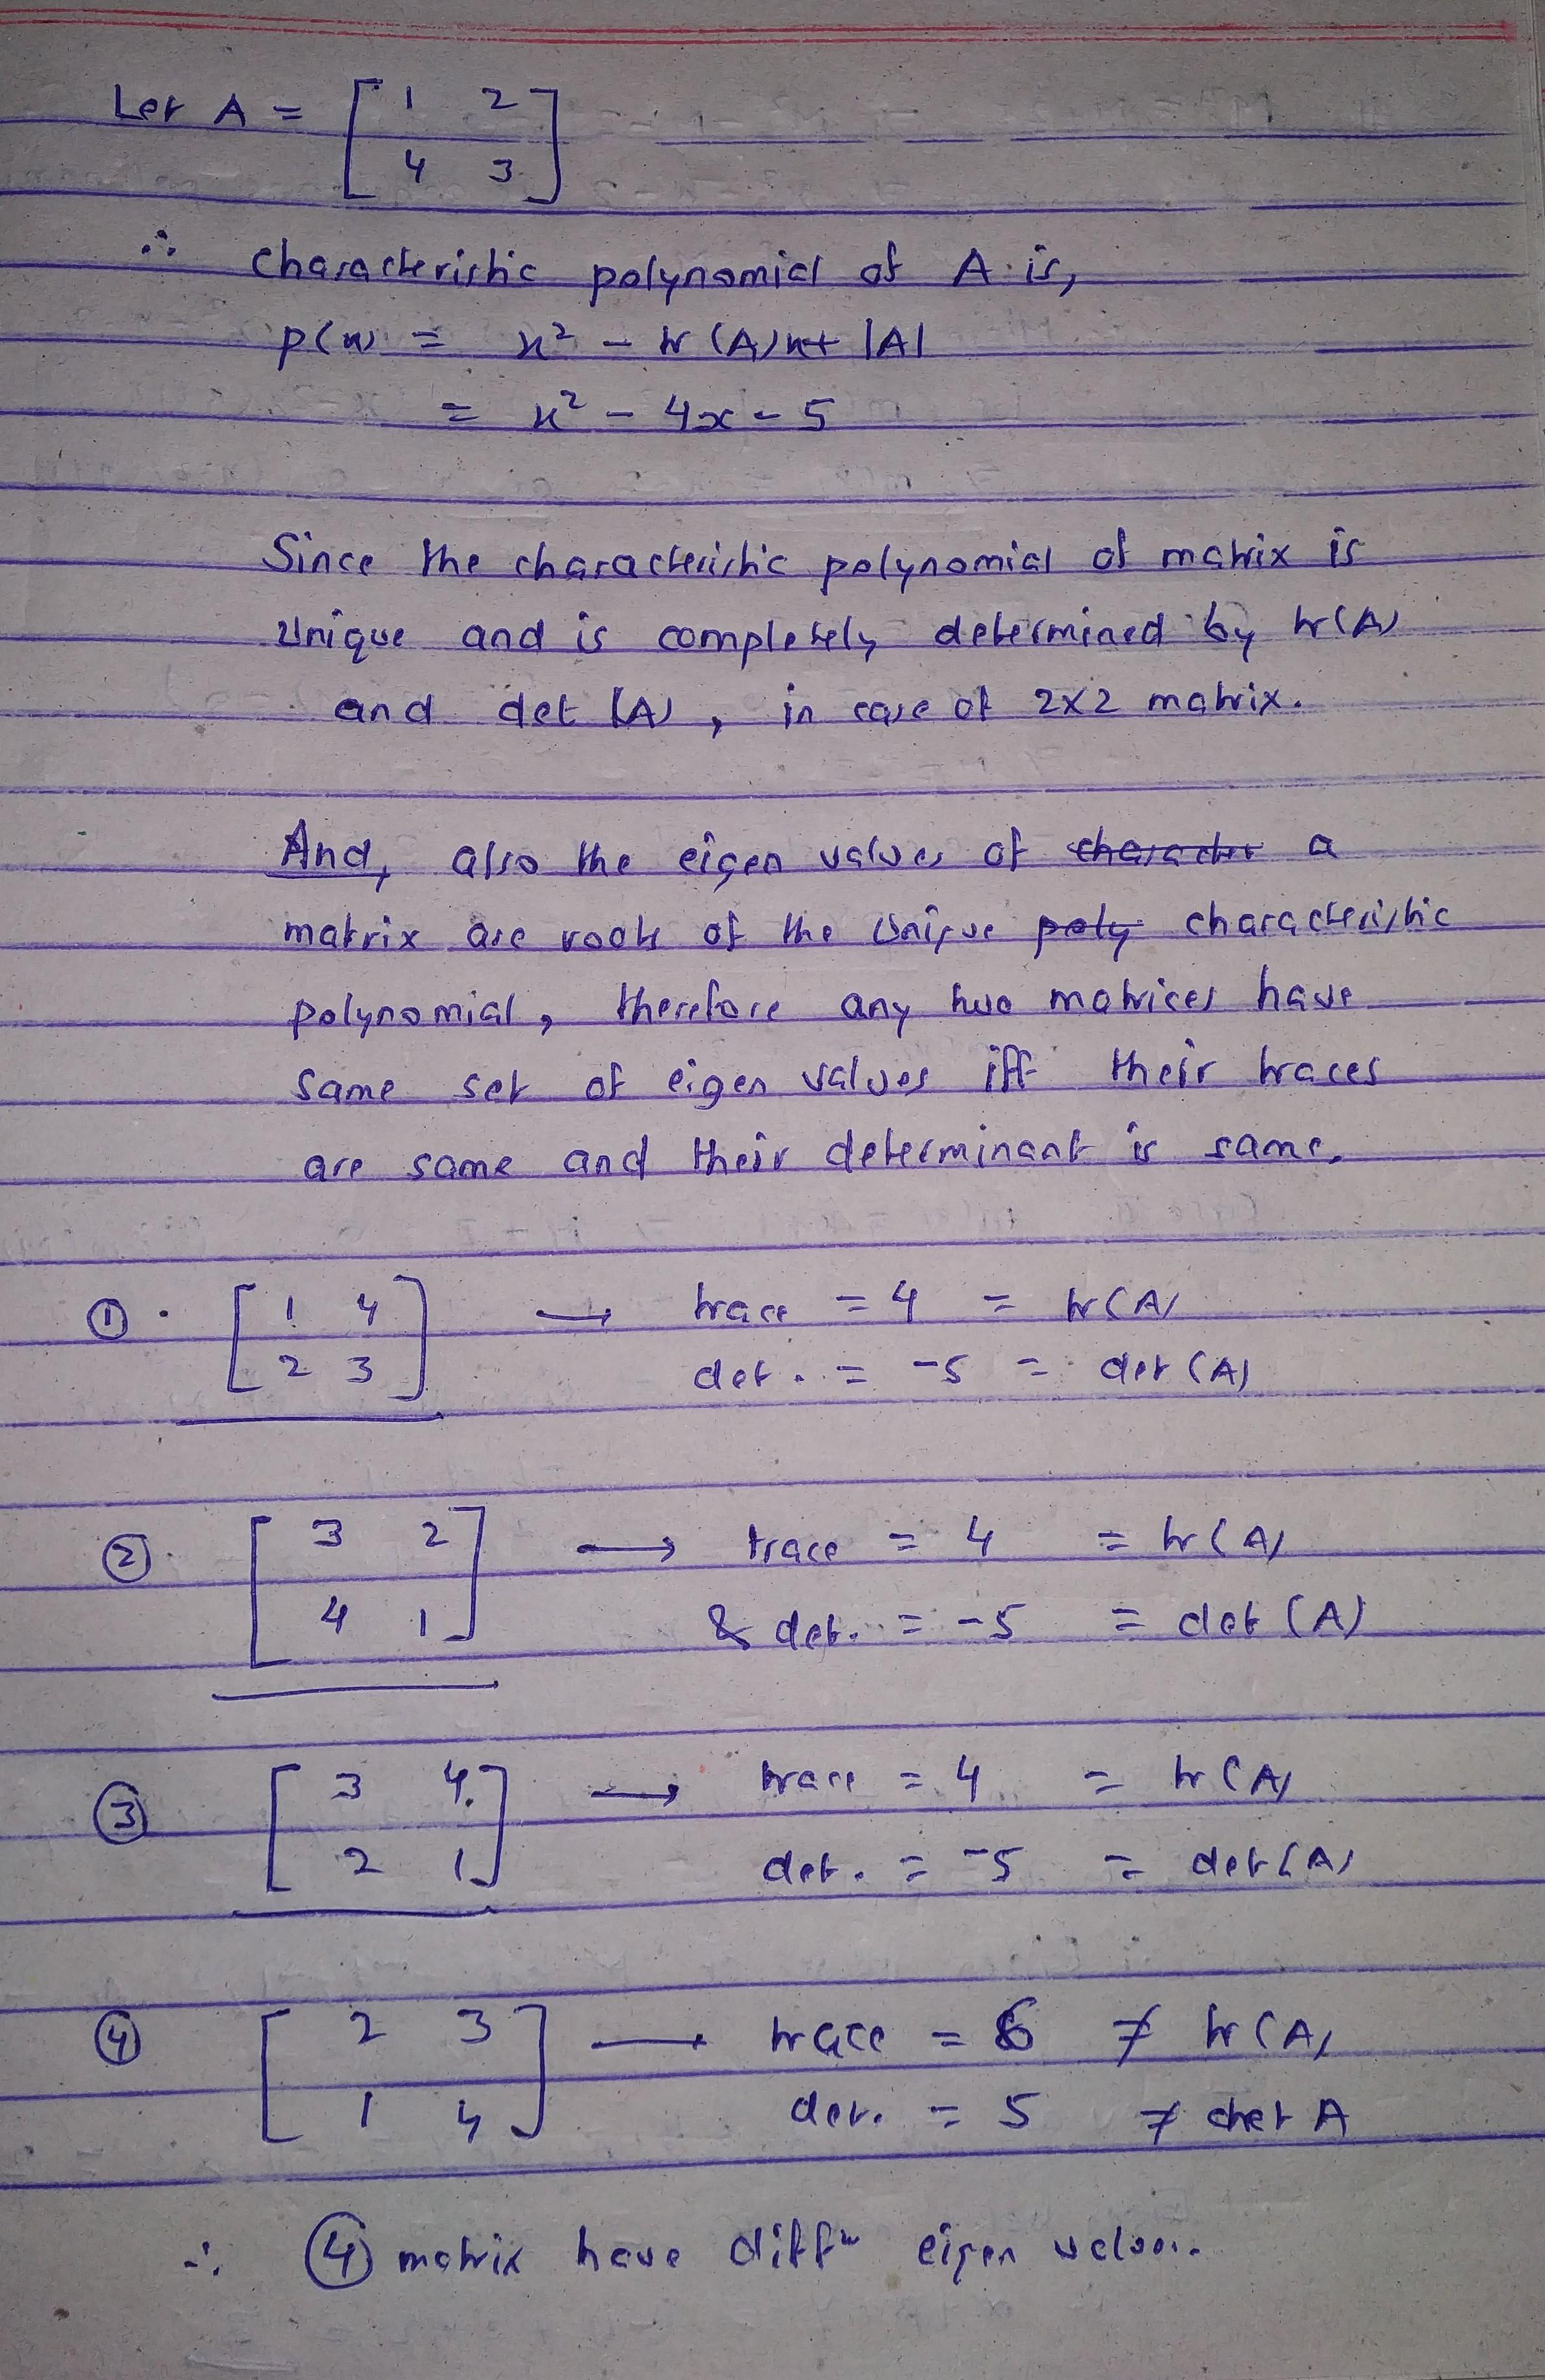 Let A = [ 1 2
4 3 ]
∴ characteristic polynomial of A is,
p(x) = x² - tr(A)x + |A|
= x² - 4x - 5
Since the characteristic polynomial of matrix is
unique and is completely determined by tr(A)
and det(A), in case of 2x2 matrix.
And, also the eigen values of charactor a
matrix are roots of the unique poly characteristic
polynomial, therefore any two matrices have
same set of eigen values iff their traces
are same and their determinant is same.
① . [ 1 4 → trace = 4 = tr(A)
2 3 ] det. = -5 = det(A)
② . [ 3 2 → trace = 4 = tr(A)
4 1 ] & det. = -5 = det(A)
③ [ 3 4 → trace = 4 = tr(A)
2 1 ] det. = -5 = det(A)
④ [ 2 3 → trace = 6 ≠ tr(A)
1 4 ] det. = 5 ≠ det A
∴ ④ matrix have diff eigen values.